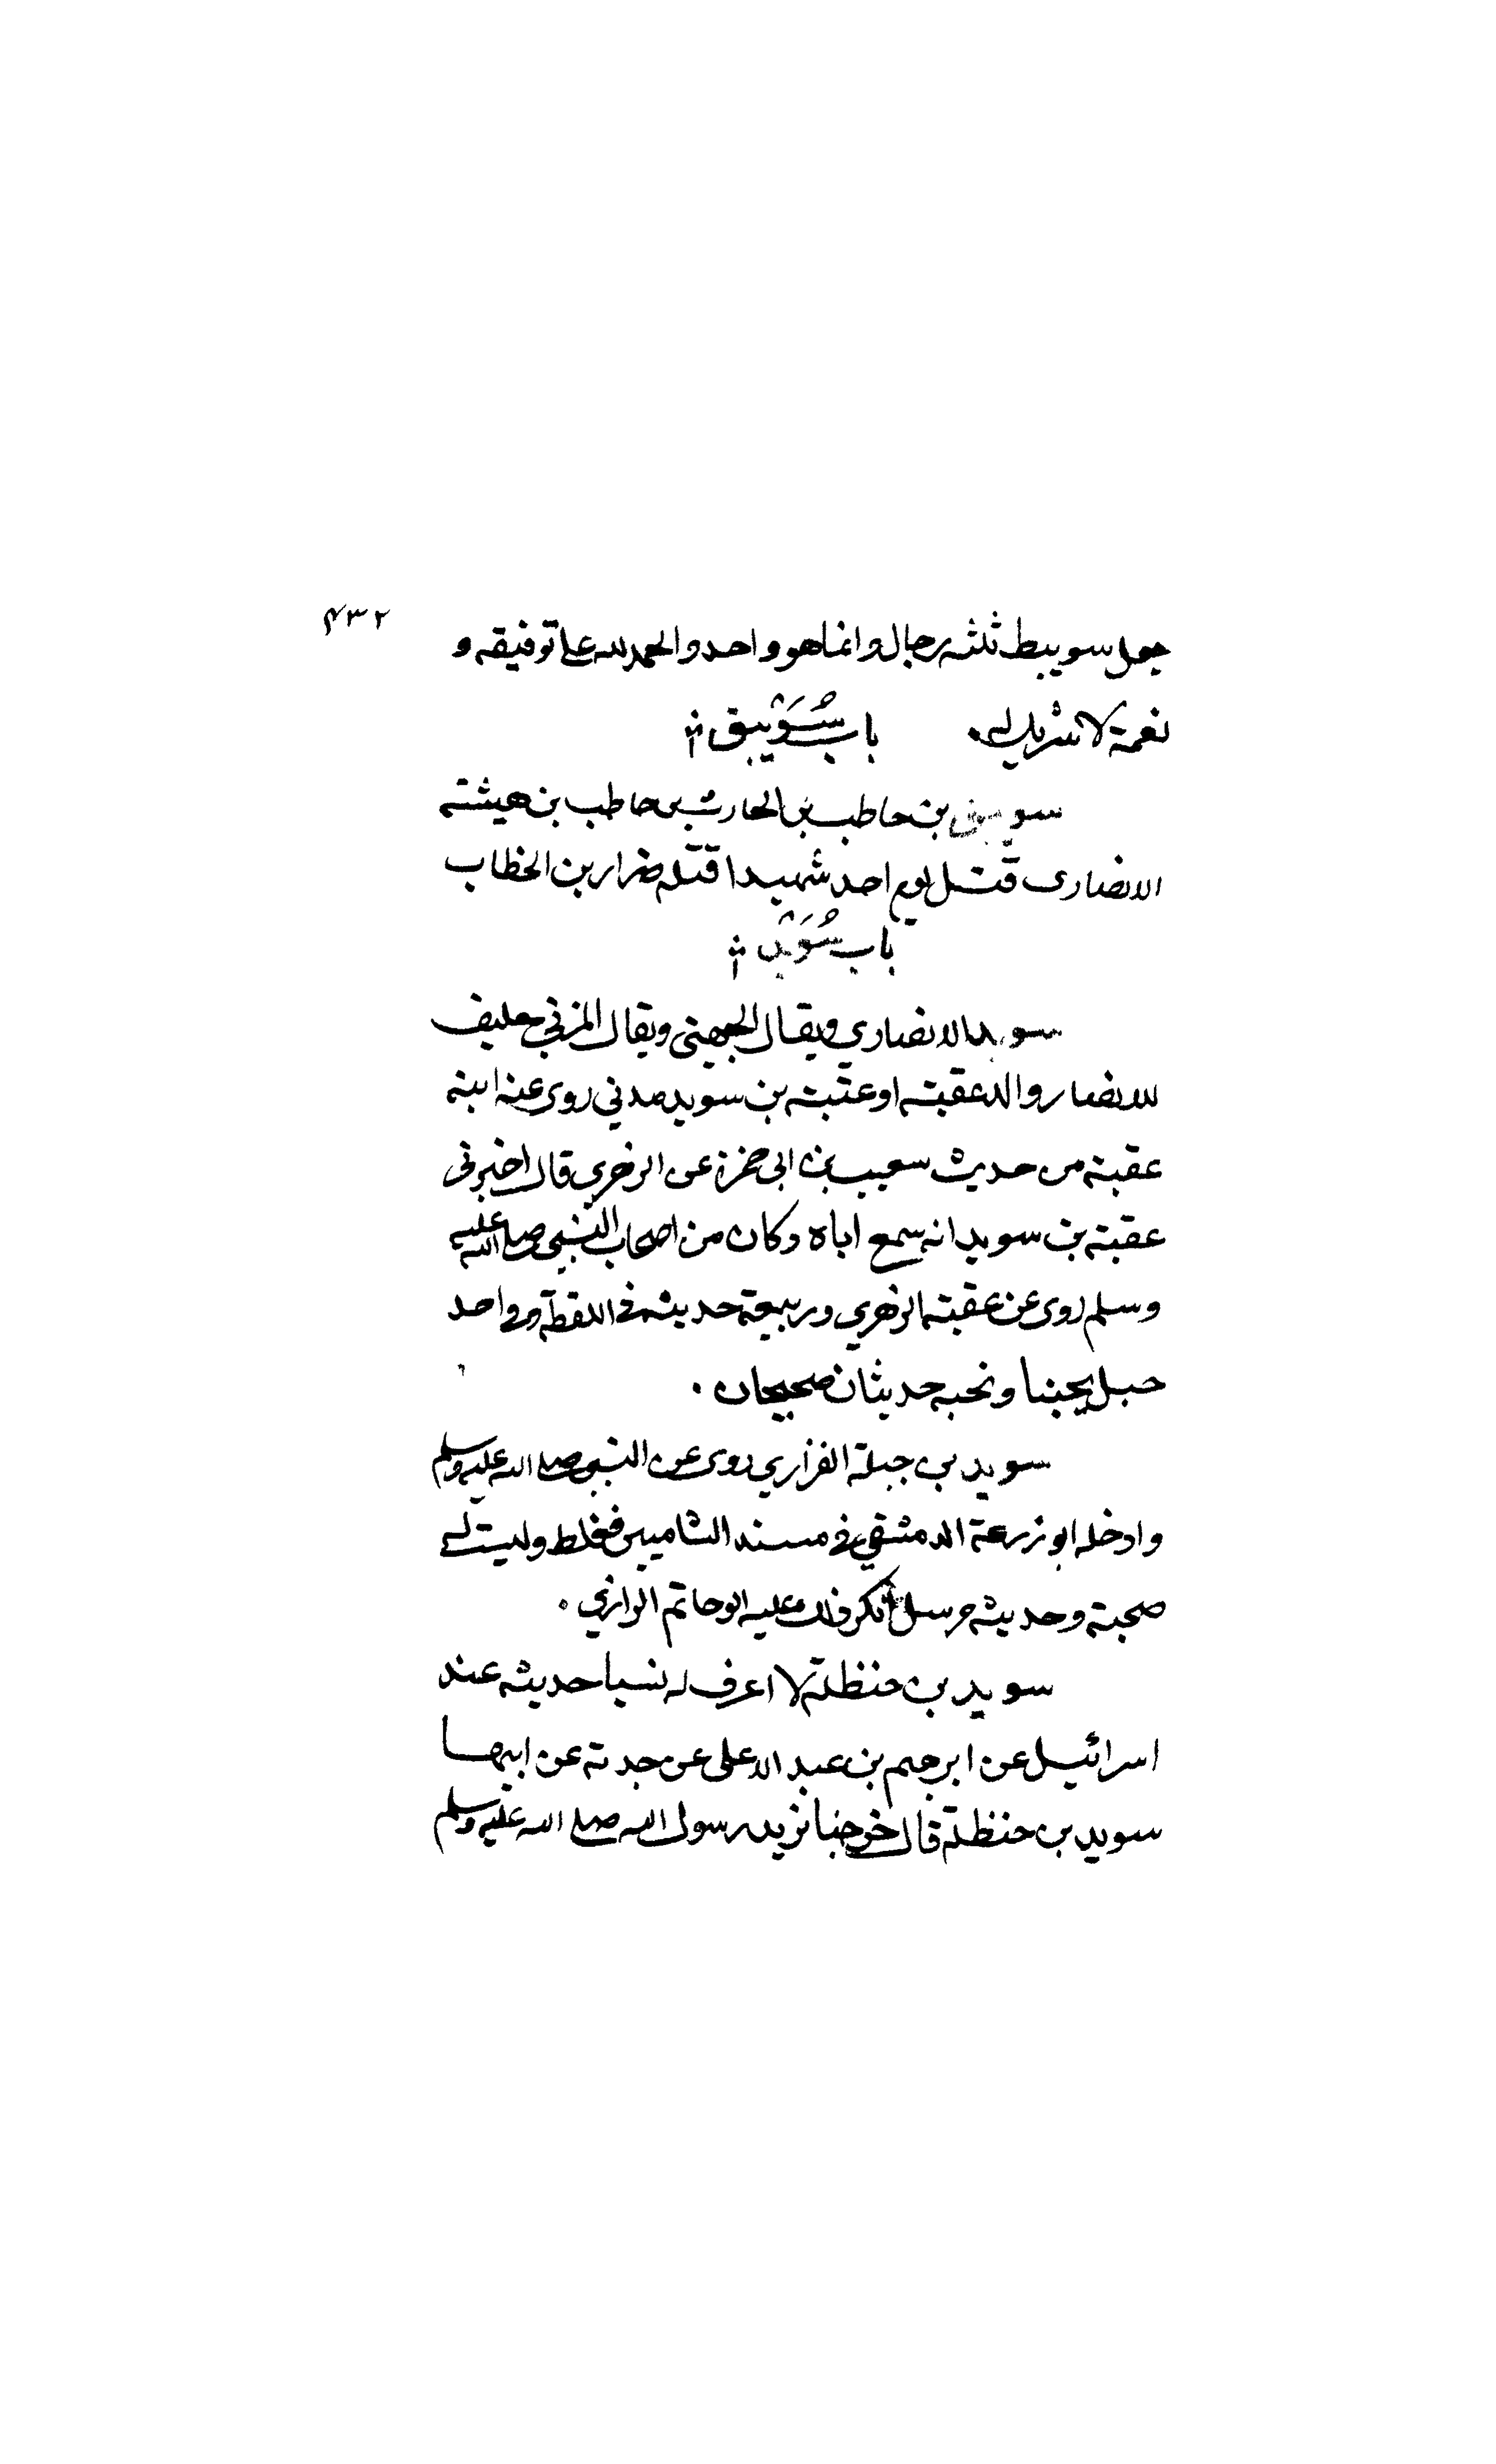 ٤٣٢
جعل سويبط ثلثه رجال وانما هو واحد والحمد لله على توفيقه و
نعمة لا شريك له. باب سُوَيبق
سويبق بن حاطب بن الحارث بن حاطب بن هيشته
الانصارى قتل يوم احد شهيدا قتله ضرار بن الخطاب
باب سُوَيد
سويد الانصاري ويقال الجهني ويقال المزني حليف
للانصار والد عقبته او عتبته بن سويد مدني روى عنه ابنه
عقبته من حديث شعيب بن ابى حمزة عن الزهري قال اخبرنى
عقبته بن سويد انه سمع اباه وكان من اصحاب النبي صلى الله عليه
وسلم روى عن عقبته الزهري وربيعة حديثه فى اللقطة وفى احد
جبل يحبنا ونحبه حديثان صحيحان .
سويد بن جبلة الفزاري روى عن النبي صلى الله عليه وسلم
وادخله ابو زرعة الدمشقي فى مسند الشاميين فغلط وليست له
صحبته وحديثه مرسل انكر ذلك عليه ابو حاتم الرازي .
سويد بن حنظلة لا اعرف له نسبا حديثه عند
اسرائيل عن ابرهيم بن عبد الاعلى عن جدته عن ابيها
سويد بن حنظلة قال خرجنا نريد رسول الله صلى الله عليه وسلم